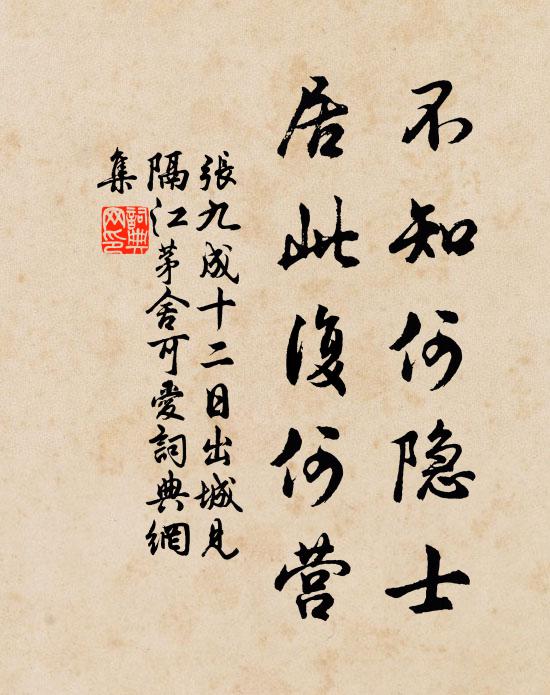 不知何隐士
居此復何营
張九成十二日出城見
隔江茅舍可愛詞典網
集
詞典
网印